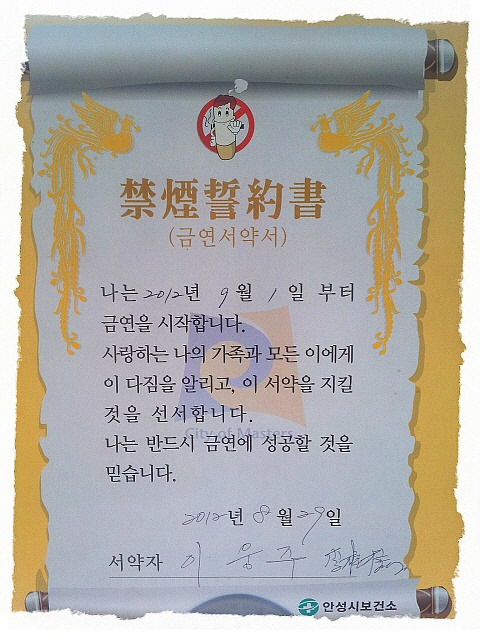 禁煙誓約書
(금연서약서)
나는 2012년 9월 1일 부터
금연을 시작합니다.
사랑하는 나의 가족과 모든 이에게
이 다짐을 알리고, 이 서약을 지킬
것을 선서합니다.
City of Masters
나는 반드시 금연에 성공할 것을
믿습니다.
2012년 8월 29일
서약자 이 웅 주
안성시보건소